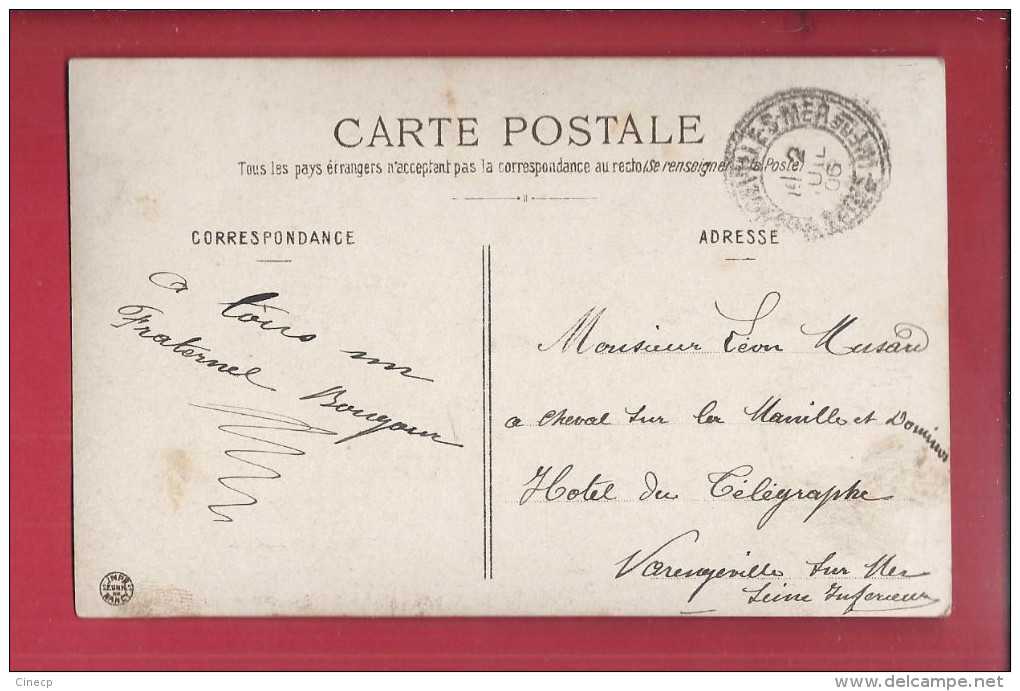 CARTE POSTALE
Tous les pays étrangers n'acceptent pas la correspondance au recto (Se renseigner à la Poste)
CORRESPONDANCE
a tous un
Fraternel Bongour
ADRESSE
Monsieur Léon Musard
a cheval sur la Manille et Dominos
Hotel du Télégraphe
Varengeville sur Mer
Seine Inferieure
2
JUIL
06
IMPR
RÉUNIES
NANCY
Cinecp
delcampe.net